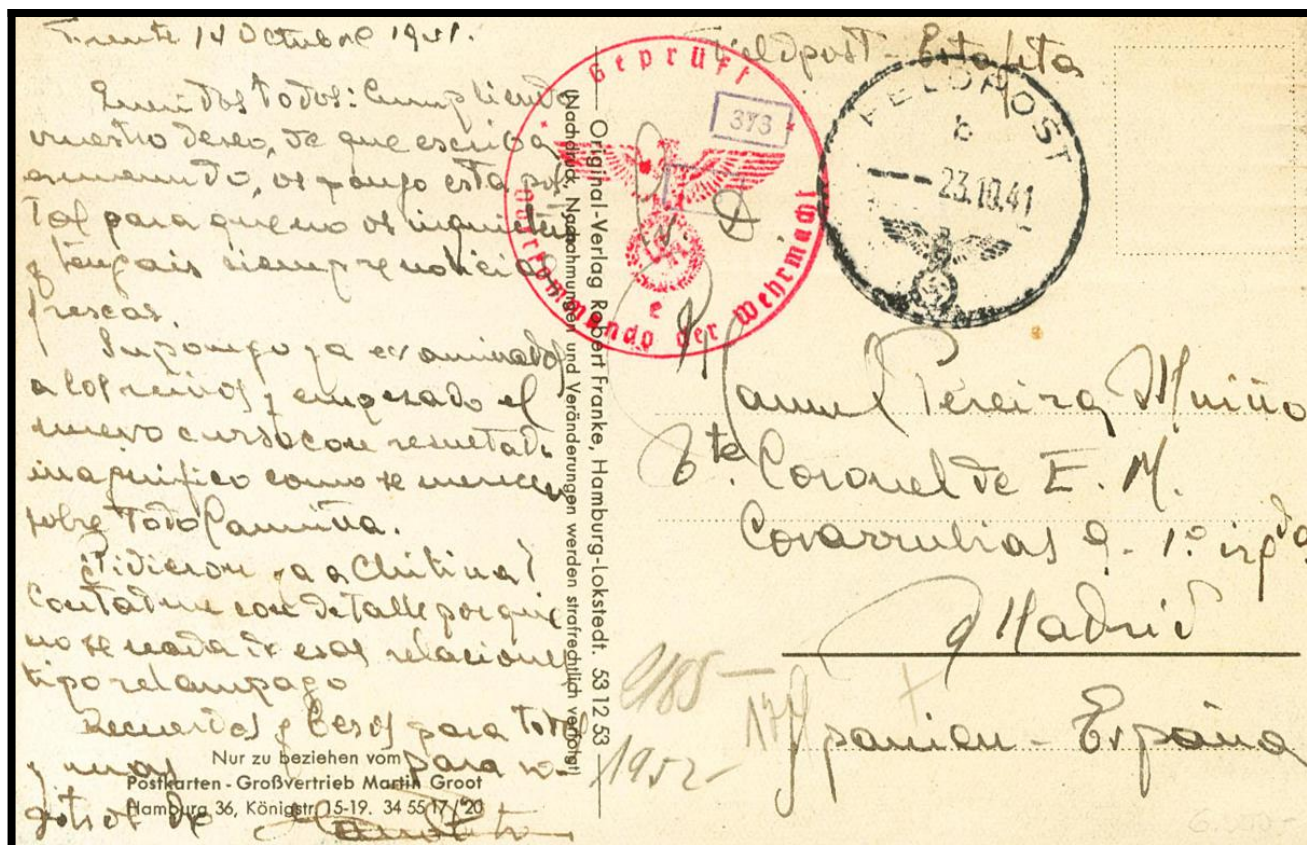 14 Octubre 1941.
todos: Cumpliendo
vuestro deseo, de que escriba
os pongo esta pos
tal para que no os inquieteis
y tengais siempre noticias
frescas.
Supongo ya examinados
a los y empezado el
nuevo curso con resultado
magnifico como se merecen
sobre todo
¿Pidieron ya a Chitina?
Contadme con detalle porque
no se nada de esas relaciones
tipo relampago
Recuerdos y besos para todos
y unos para vo-
sotros de
Nur zu beziehen vom
Postkarten - Großvertrieb Martin Groot
Hamburg 36, Königstr. 15-19. 34 55 17/20
Original-Verlag Robert Franke, Hamburg-Lokstedt. 53 12 53
(Nachdruck, Nachahmungen und Veränderungen werden strafrechtlich verfolgt)
Feldpost - Estafeta
Geprüft
Oberkommando der Wehrmacht
e
373
FELDPOST
b
23.10.41
Sr. D.
Manuel Pereira Muiño
Tte. Coronel de E. M.
Covarrubias 9 - 1º izqda
Madrid
Spanien - España
1952-